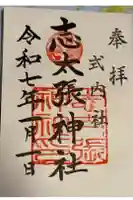 奉拝
式内社
志太張神社
令和七年一月一日